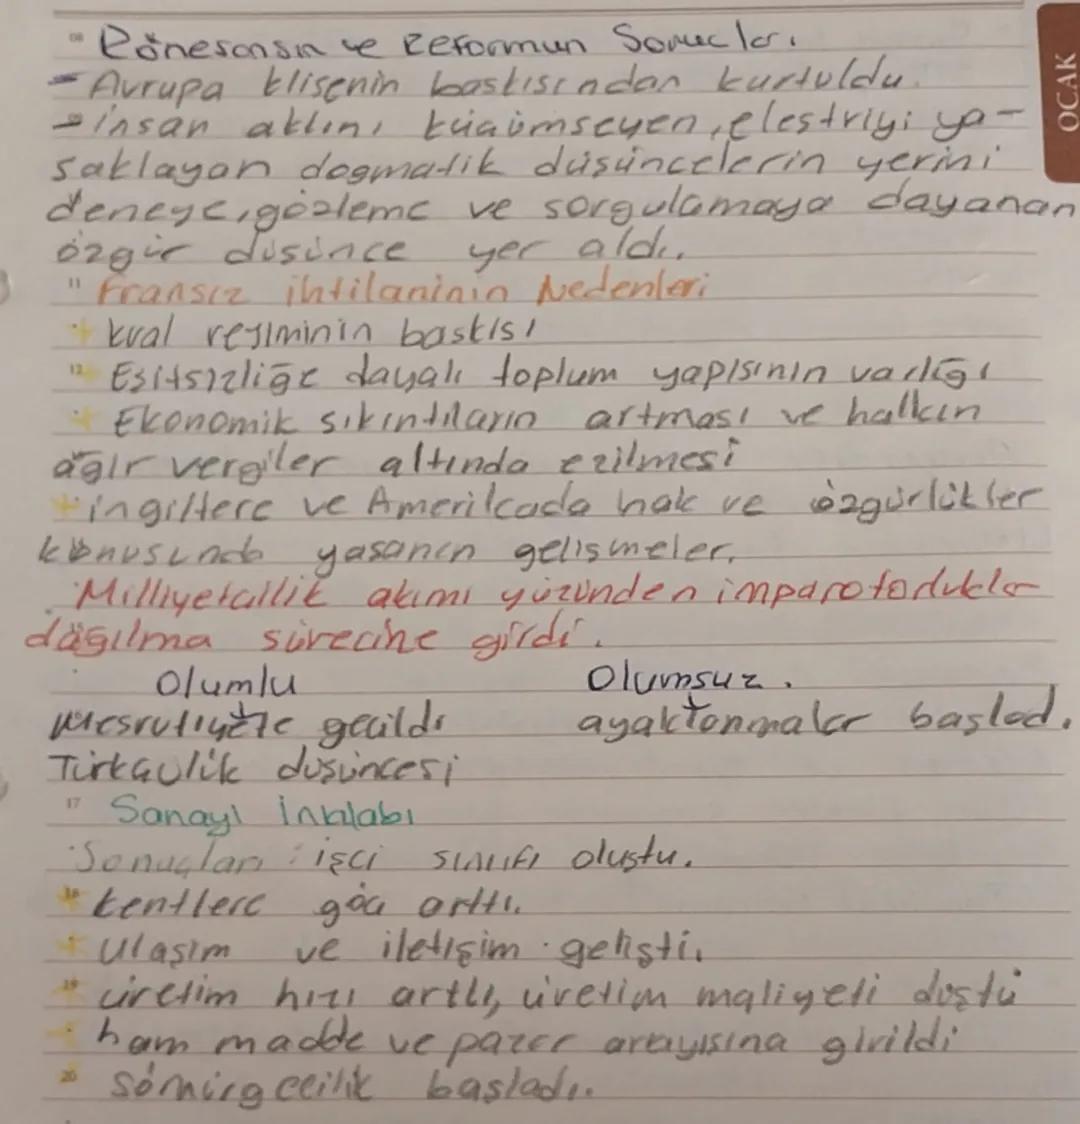 Rönesansın ve Reformun Sonucları
- Avrupa klisenin baskısından kurtuldu.
- insan aklını küçümseyen, elestriyi ya-
saklayan dogmatik düşüncelerin yerini
deneye, gözleme ve sorgulamaya dayanan
özgür düsünce yer aldı.
11 Fransız ihtilaninin Nedenleri
+ kral rejiminin baskısı
12 Esitsizliğe dayalı toplum yapısının varlığı
+ Ekonomik sıkıntıların artması ve halkın
ağır vergiler altında ezilmesi
+ ingiltere ve Amerikada hak ve özgürlükler
konusunda yasanan gelismeler.
Milliyetcilik akımı yüzünden imparotorluklar
dağılma sürecine girdi.
Olumlu Olumsuz.
Mesrutiyete gecildi ayaklanmalar başladı.
Türkçülük düsüncesi
17 Sanayi İnkılabı
Sonuçları: işci sınıfı oluştu.
18 kentlere göç arttı.
+ Ulaşım ve iletişim gelişti.
19 üretim hızı arttı, üretim maliyeti düştü
ham madde ve pazar arayısına girildi
20 sömürgecilik başladı.
OCAK